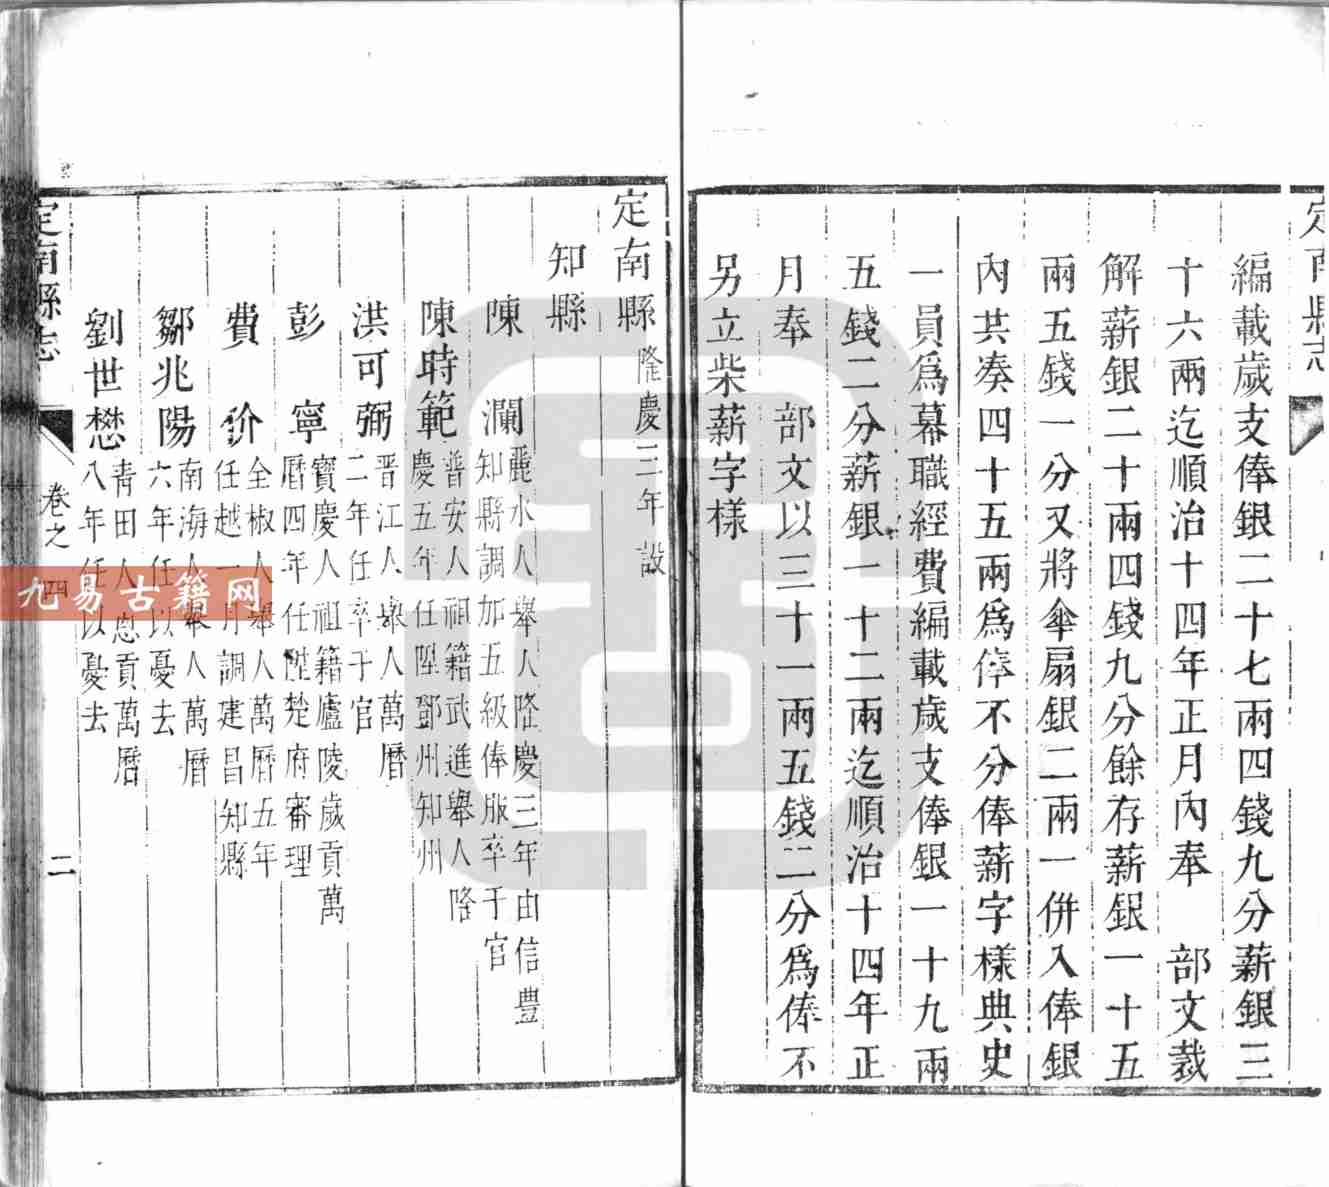 定南縣志
編載歲支俸銀二十七兩四錢九分薪銀三
十六兩迄順治十四年正月內奉 部文裁
解薪銀二十兩四錢九分餘存薪銀一十五
兩五錢一分又將傘扇銀二兩一併入俸銀
內共凑四十五兩爲俸不分俸薪字樣典史
一員爲幕職經費編載歲支俸銀一十九兩
五錢二分薪銀一十二兩迄順治十四年正
月奉 部文以三十一兩五錢二分爲俸不
另立柴薪字樣
定南縣 隆慶三年設
知縣
陳 瀾 麗水人舉人隆慶三年由信豐
知縣調加五級俸服卒于官
陳時範 普安人祖籍武進舉人隆
慶五年任陞鄧州知州
洪可弼 晋江人舉人萬曆
二年任卒于官
彭 寧 寶慶人祖籍廬陵歲貢萬
曆四年任陞楚府審理
費 价 全椒人舉人萬曆五年
任越一月調建昌知縣
鄒兆陽 南海人舉人萬曆
六年任以憂去
劉世懋 青田人恩貢萬曆
八年任以憂去
定南縣志 卷之四 二
九易古籍网